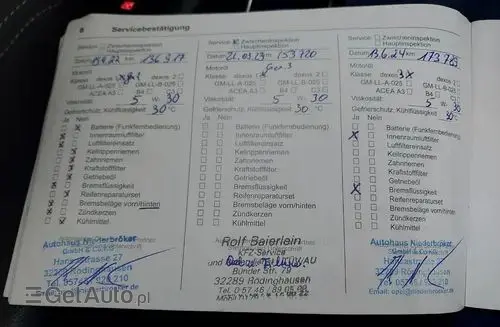 8 Servicebestätigung
Service: Zwischeninspektion
Hauptinspektion
Datum 19.4.22 km 136.317
Motoröl
Klasse dexos dexos 2
GM-LL-A-025 GM-LL-B-025
ACEA A3 B4 C3
Viskosität: 5 W- 30
Gefrierschutz, Kühlflüssigkeit 30 °C
Ja Nein
Batterie (Funkfernbedienung)
Innenraumluftfilter
Luftfiltereinsatz
Keilrippenriemen
Zahnriemen
Kraftstofffilter
Getriebeöl
Bremsflüssigkeit
Reifenreparaturset
Bremsbeläge vorn/hinten
Zündkerzen
Kühlmittel
Autohaus Niederbröker
GmbH & Co.KG
Hansastrasse 27
32289 Rödinghausen
Service: Zwischeninspektion
Hauptinspektion
Datum 21.03.23 km 153720
Motoröl
Klasse: dexos 2
GM-LL-A-025 GM-LL-B-025
ACEA A3 B4 C3
Viskosität: 5 W- 30
Gefrierschutz, Kühlflüssigkeit 30 °C
Ja Nein
Batterie (Funkfernbedienung)
Innenraumluftfilter
Luftfiltereinsatz
Keilrippenriemen
Zahnriemen
Kraftstofffilter
Getriebeöl
Bremsflüssigkeit
Reifenreparaturset
Bremsbeläge vorn/hinten
Zündkerzen
Kühlmittel
Rolf Baierlein
KFZ-Service
Bünder Str. 79
32289 Rödinghausen
Service: Zwischeninspektion
Hauptinspektion
Datum 13.6.24 km 173.723
Motoröl
Klasse dexos dexos 2
GM-LL-A-025 GM-LL-B-025
ACEA A3 B4 C3
Viskosität: 5 W- 30
Gefrierschutz, Kühlflüssigkeit 30 °C
Ja Nein
Batterie (Funkfernbedienung)
Innenraumluftfilter
Luftfiltereinsatz
Keilrippenriemen
Zahnriemen
Kraftstofffilter
Getriebeöl
Bremsflüssigkeit
Reifenreparaturset
Bremsbeläge vorn/hinten
Zündkerzen
Kühlmittel
Autohaus Niederbröker
GmbH & Co.KG
32289 Rödinghausen
GetAuto.pl